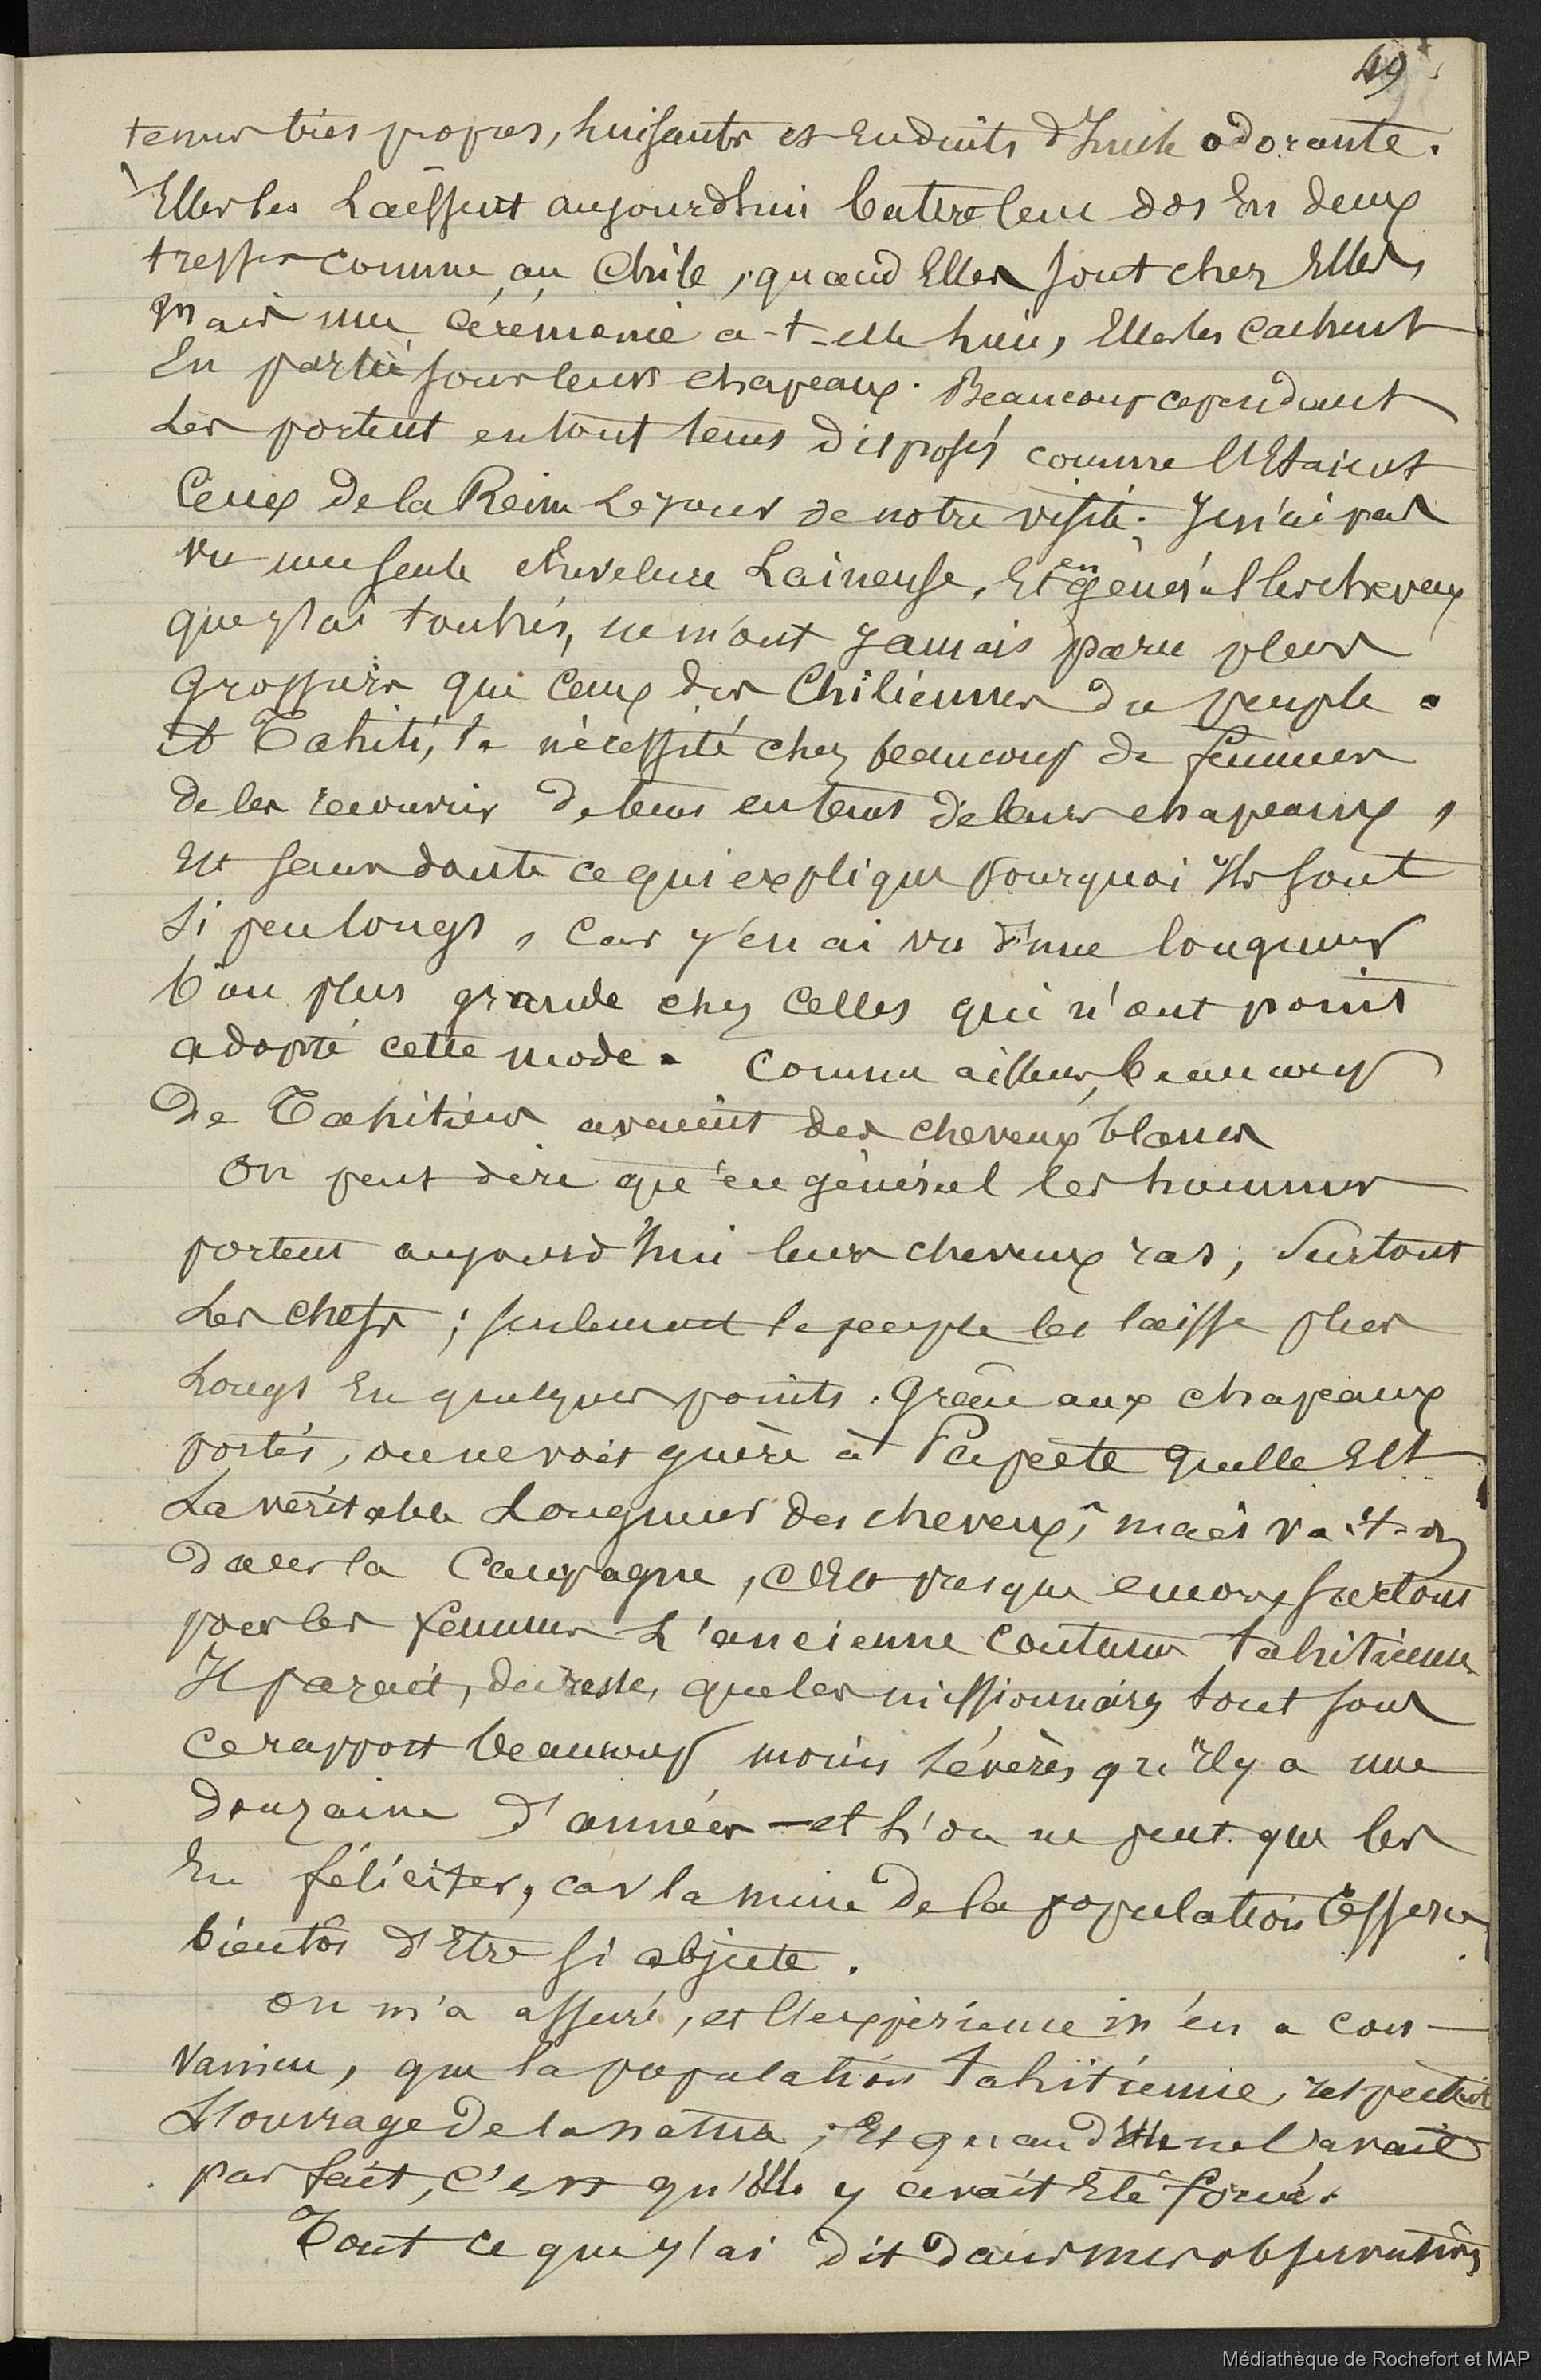 49
tenus très propres, luisants et enduits d'huile odorante.
Elles les laissent aujourdhui battre leur dos En deux
tresses comme au Chile, quand Elles sont chez Elles,
Mais une cérémonie a-t-elle lieu, Elles les cachent
En partie sous leurs chapeaux. Beaucoup cependant
Les portent en tout tems disposés comme l'Etaient
Ceux de la Reine Le jour de notre visite. Je n'ai pas
vu une seule chevelure Laineuse, Et en général les cheveux
que j'ai touchés, ne m'ont jamais paru plus
Grossiers que Ceux des Chiliennes du peuple.
A Tahiti, la nécessité chez beaucoup de femmes
de les recouvrir de tems en tems de leurs chapeaux,
Est sans doute ce qui explique pourquoi Ils sont
Si peu longs, Car j'en ai vu d'une longueur
b'au plus grande chez Celles qui n'ont point
adopté cette mode. Comme ailleurs, beaucoup
De Tahitiens avaient des cheveux blancs
On peut dire qu'en général les hommes
portent aujourd'hui leurs cheveux ras; Surtout
Les chefs; seulement le peuple les laisse plus
Longs En quelques points. Grâce aux chapeaux
portés, on ne voit guère à Papeete quelle Est
La véritable Longueur des cheveux, mais va-t-on
dans la Campagne, c'Est presque encore surtout
pour les femmes L'ancienne coutume tahitienne
Il parait, du reste, que les missionnaires sont sous
ce rapport beaucoup moins sévères qu'Il y a une
douzaine d'années - et l'on ne peut que les
En féliciter, car la mine de la population cessera
bientôt d'Etre si abjecte.
On m'a assuré, et l'expérience m'en a con-
vaincu, que la population tahitienne, respectait
L'ouvrage de la nature, Et quand Elle ne l'avait
pas fait, c'est qu'Elle y avait Eté forcée.
Tout ce que j'ai dit dans mes observations
Médiathèque de Rochefort et MAP